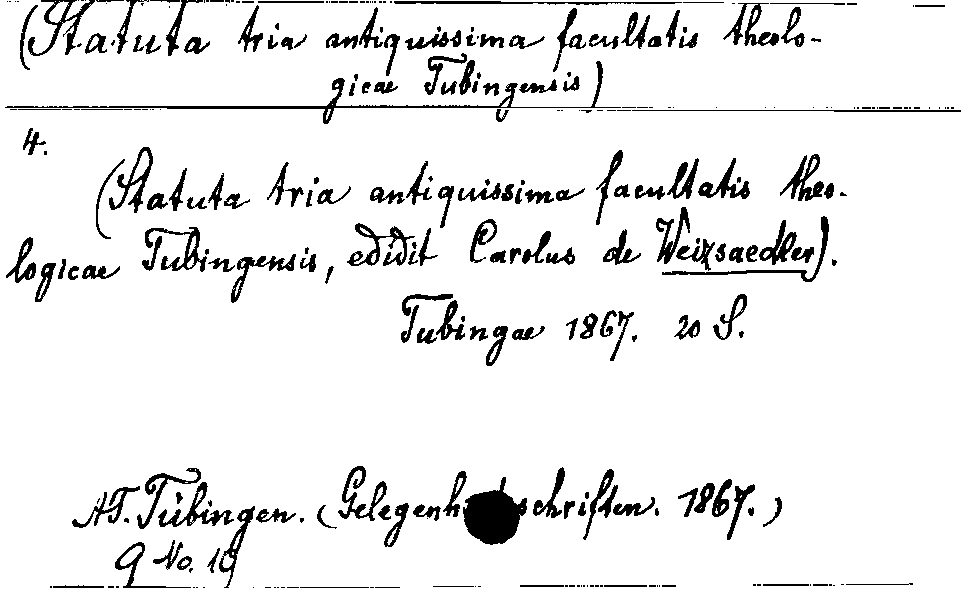 (Statuta tria antiquissima facultatis theolo-
gicae Tubingensis)
4.
(Statuta tria antiquissima facultatis theo-
logicae Tubingensis, edidit Carolus de Weizsaecker).
Tubingae 1867. 20 S.
AT. Tübingen. (Gelegenheitsschriften. 1867.)
9 No. 10